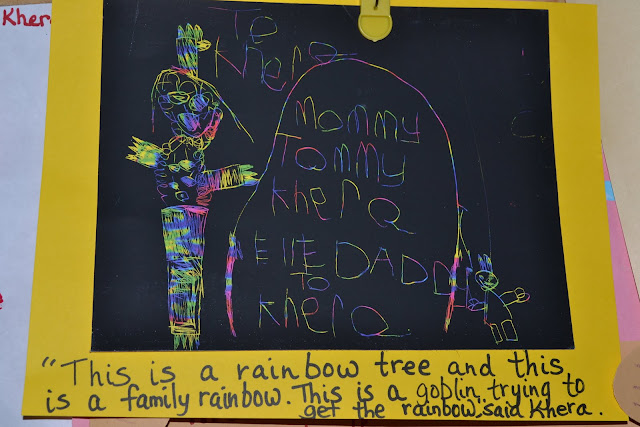 Khera
To
Khera
Mommy
Tommy
Khera
EllE DADDY
To
Khera
"This is a rainbow tree and this
is a family rainbow. This is a goblin trying to
get the rainbow, said Khera.